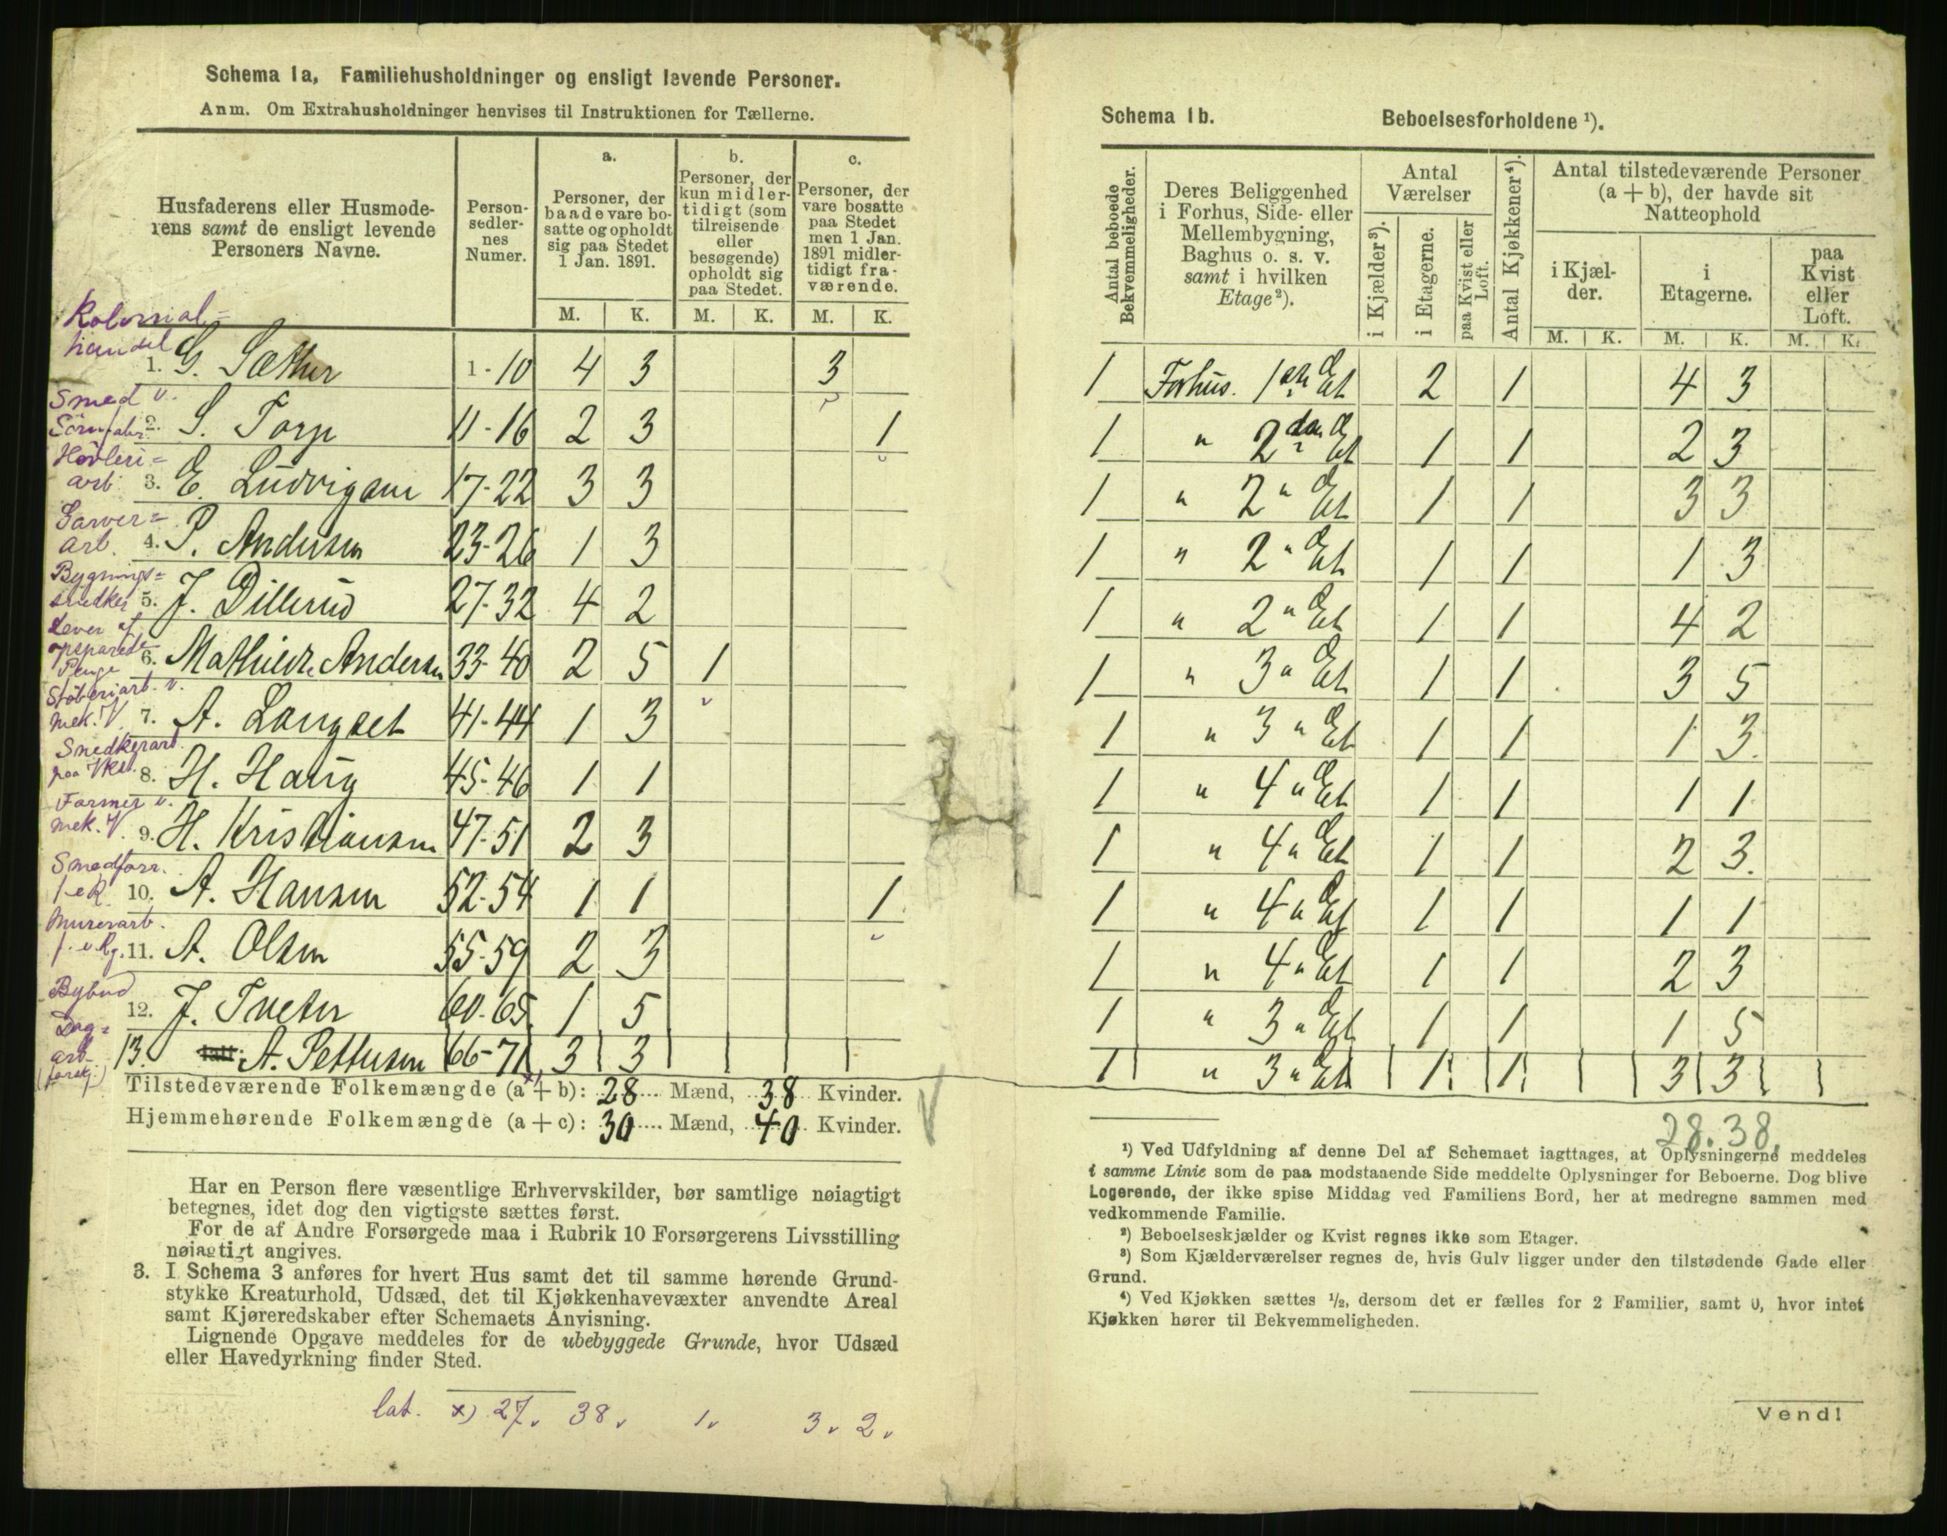 Schema 1a, Familiehusholdninger og ensligt levende Personer.
Anm. Om Extrahusholdninger henvises til Instruktionen for Tællerne.
Husfaderens eller Husmoderens samt de ensligt levende Personers Navne.
Personsedlernes Numer.
a. Personer, der baade vare bosatte og opholdt sig paa Stedet 1 Jan. 1891.
b. Personer, der kun midlertidigt (som tilreisende eller besøgende) opholdt sig paa Stedet.
c. Personer, der vare bosatte paa Stedet men 1 Jan. 1891 midlertidigt fraværende.
M. K. M. K. M. K.
Kolonial=handel 1. G. Sæther 1-10 4 3 3
Smed v. 2. S. Torp 11-16 2 3 1
Høvleri=arb. 3. E. Ludvigsen 17-22 3 3
Garver=arb. 4. P. Andersen 23-26 1 3
Bygnings=snedker 5. J. Dillerud 27-32 4 2
Lever af opsparede Penge 6. Mathilde Andersen 33-40 2 5 1
Støberiarb. v. mek. V. 7. A. Langset 41-44 1 3
Snedkerarb. paa Vkst. 8. H. Haug 45-46 1 1
Former v. mek. V. 9. H. Kristiansen 47-51 2 3
10. A. Hansen 52-54 1 1 1
Murerarb. 11. A. Olsen 55-59 2 3
Bybud 12. J. Tveter 60-65 1 5
Dag=arb. 13. A. Pettersen 66-71 3 3
Tilstedeværende Folkemængde (a x) + b): 28 Mænd, 38 Kvinder.
Hjemmehørende Folkemængde (a + c): 30 Mænd, 40 Kvinder.
Har en Person flere væsentlige Erhvervskilder, bør samtlige nøiagtigt
betegnes, idet dog den vigtigste sættes først.
For de af Andre Forsørgede maa i Rubrik 10 Forsørgerens Livsstilling
nøiagtigt angives.
3. I Schema 3 anføres for hvert Hus samt det til samme hørende Grund-
stykke Kreaturhold, Udsæd, det til Kjøkkenhavevæxter anvendte Areal
samt Kjøreredskaber efter Schemaets Anvisning.
Lignende Opgave meddeles for de ubebyggede Grunde, hvor Udsæd
eller Havedyrkning finder Sted.
lat. x) 27. 38. 1. 3. 2.
Schema 1b. Beboelsesforholdene ¹).
Antal beboede Bekvemmeligheder.
Deres Beliggenhed i Forhus, Side- eller Mellembygning, Baghus o. s. v. samt i hvilken Etage ²).
Antal Værelser
i Kjælder ³).
i Etagerne.
paa Kvist eller Loft.
Antal Kjøkkener ⁴).
Antal tilstedeværende Personer (a + b), der havde sit Natteophold
i Kjælder.
i Etagerne.
paa Kvist eller Loft.
M. K. M. K. M. K.
1 Forhus. 1ste Et 2 1 4 3
1 " 2den Et 1 1 2 3
1 " 2 " Et 1 1 3 3
1 " 2 " Et 1 1 1 3
1 " 2 " Et 1 1 4 2
1 " 3 " Et 1 1 3 5
1 " 3 " Et 1 1 1 3.
1 " 4 " Et 1 1 1 1
1 " 4 " Et 1 1 2 3.
1 " 4 " Et 1 1 1 1
1 " 4 " Et 1 1 2 3
1 " 3 " Et 1 1 1 5
1 " 3 " Et 1 1 3 3
28. 38.
¹) Ved Udfyldning af denne Del af Schemaet iagttages, at Oplysningerne meddeles
i samme Linie som de paa modstaaende Side meddelte Oplysninger for Beboerne. Dog blive
Logerende, der ikke spise Middag ved Familiens Bord, her at medregne sammen med
vedkommende Familie.
²) Beboelseskjælder og Kvist regnes ikke som Etager.
³) Som Kjælderværelser regnes de, hvis Gulv ligger under den tilstødende Gade eller
Grund.
⁴) Ved Kjøkken sættes ½, dersom det er fælles for 2 Familier, samt 0, hvor intet
Kjøkken hører til Bekvemmeligheden.
Vend!